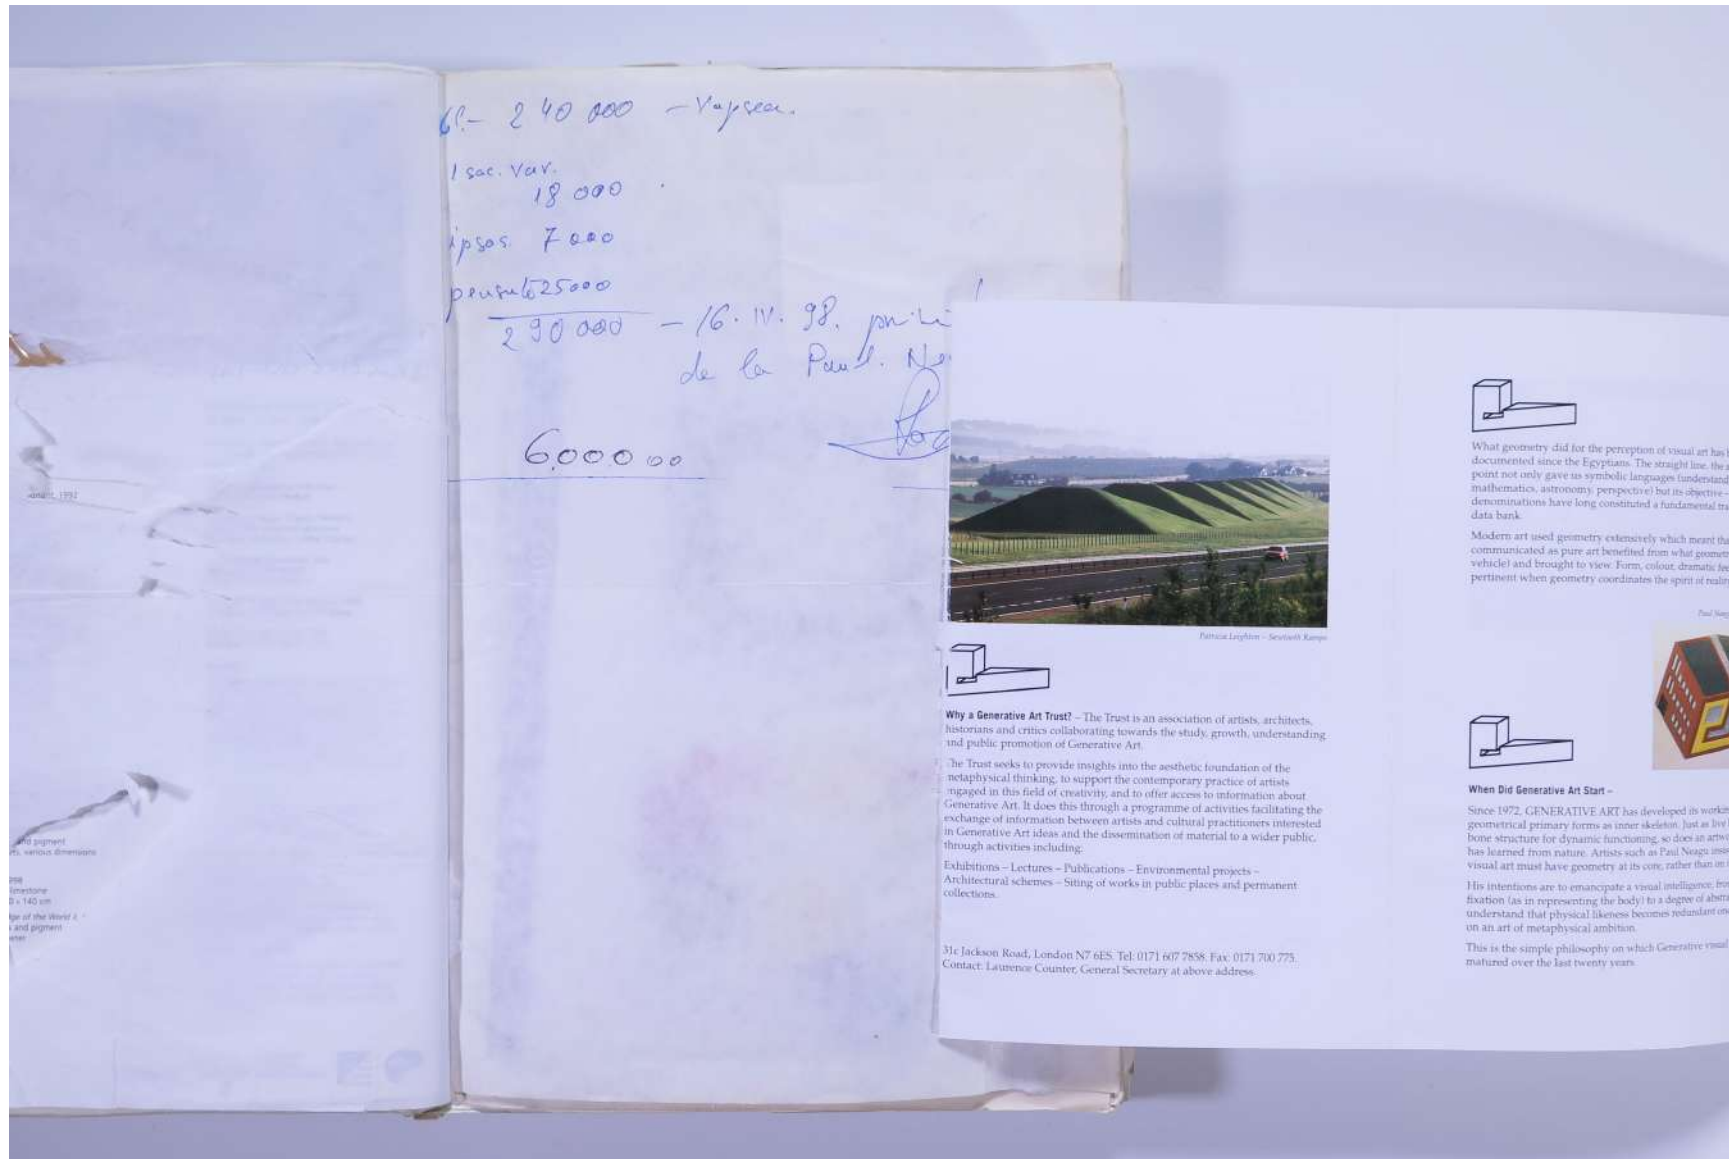 240 000 – Vapsea
1 sac. var.
18 000
ipsos 7 000
25000
290 000 – 16. IV. 98.
de la Paul. Ne
6.000.000
1992
and pigment
various dimensions
limestone
0 × 140 cm
ge of the World
and pigment
Patricia Leighton – Sawtooth Ramps
Why a Generative Art Trust? – The Trust is an association of artists, architects,
historians and critics collaborating towards the study, growth, understanding
and public promotion of Generative Art.
The Trust seeks to provide insights into the aesthetic foundation of the
metaphysical thinking, to support the contemporary practice of artists
engaged in this field of creativity, and to offer access to information about
Generative Art. It does this through a programme of activities facilitating the
exchange of information between artists and cultural practitioners interested
in Generative Art ideas and the dissemination of material to a wider public,
through activities including:
Exhibitions – Lectures – Publications – Environmental projects –
Architectural schemes – Siting of works in public places and permanent
collections.
31c Jackson Road, London N7 6ES. Tel: 0171 607 7858. Fax: 0171 700 775.
Contact: Laurence Counter, General Secretary at above address.
What geometry did for the perception of visual art has
documented since the Egyptians. The straight line, the
point not only gave us symbolic languages (understand
mathematics, astronomy, perspective) but its objective –
denominations have long constituted a fundamental
data bank.
Modern art used geometry extensively which meant
communicated as pure art benefited from what
vehicle) and brought to view. Form, colour, dramatic
pertinent when geometry coordinates the spirit of
Paul
When Did Generative Art Start –
Since 1972, GENERATIVE ART has developed its
geometrical primary forms as inner skeleton. Just as
bone structure for dynamic functioning, so does an
has learned from nature. Artists such as Paul Neagu
visual art must have geometry at its core, rather than
His intentions are to emancipate a visual intelligence,
fixation (as in representing the body) to a degree of
understand that physical likeness becomes redundant
on an art of metaphysical ambition.
This is the simple philosophy on which Generative visual
matured over the last twenty years.